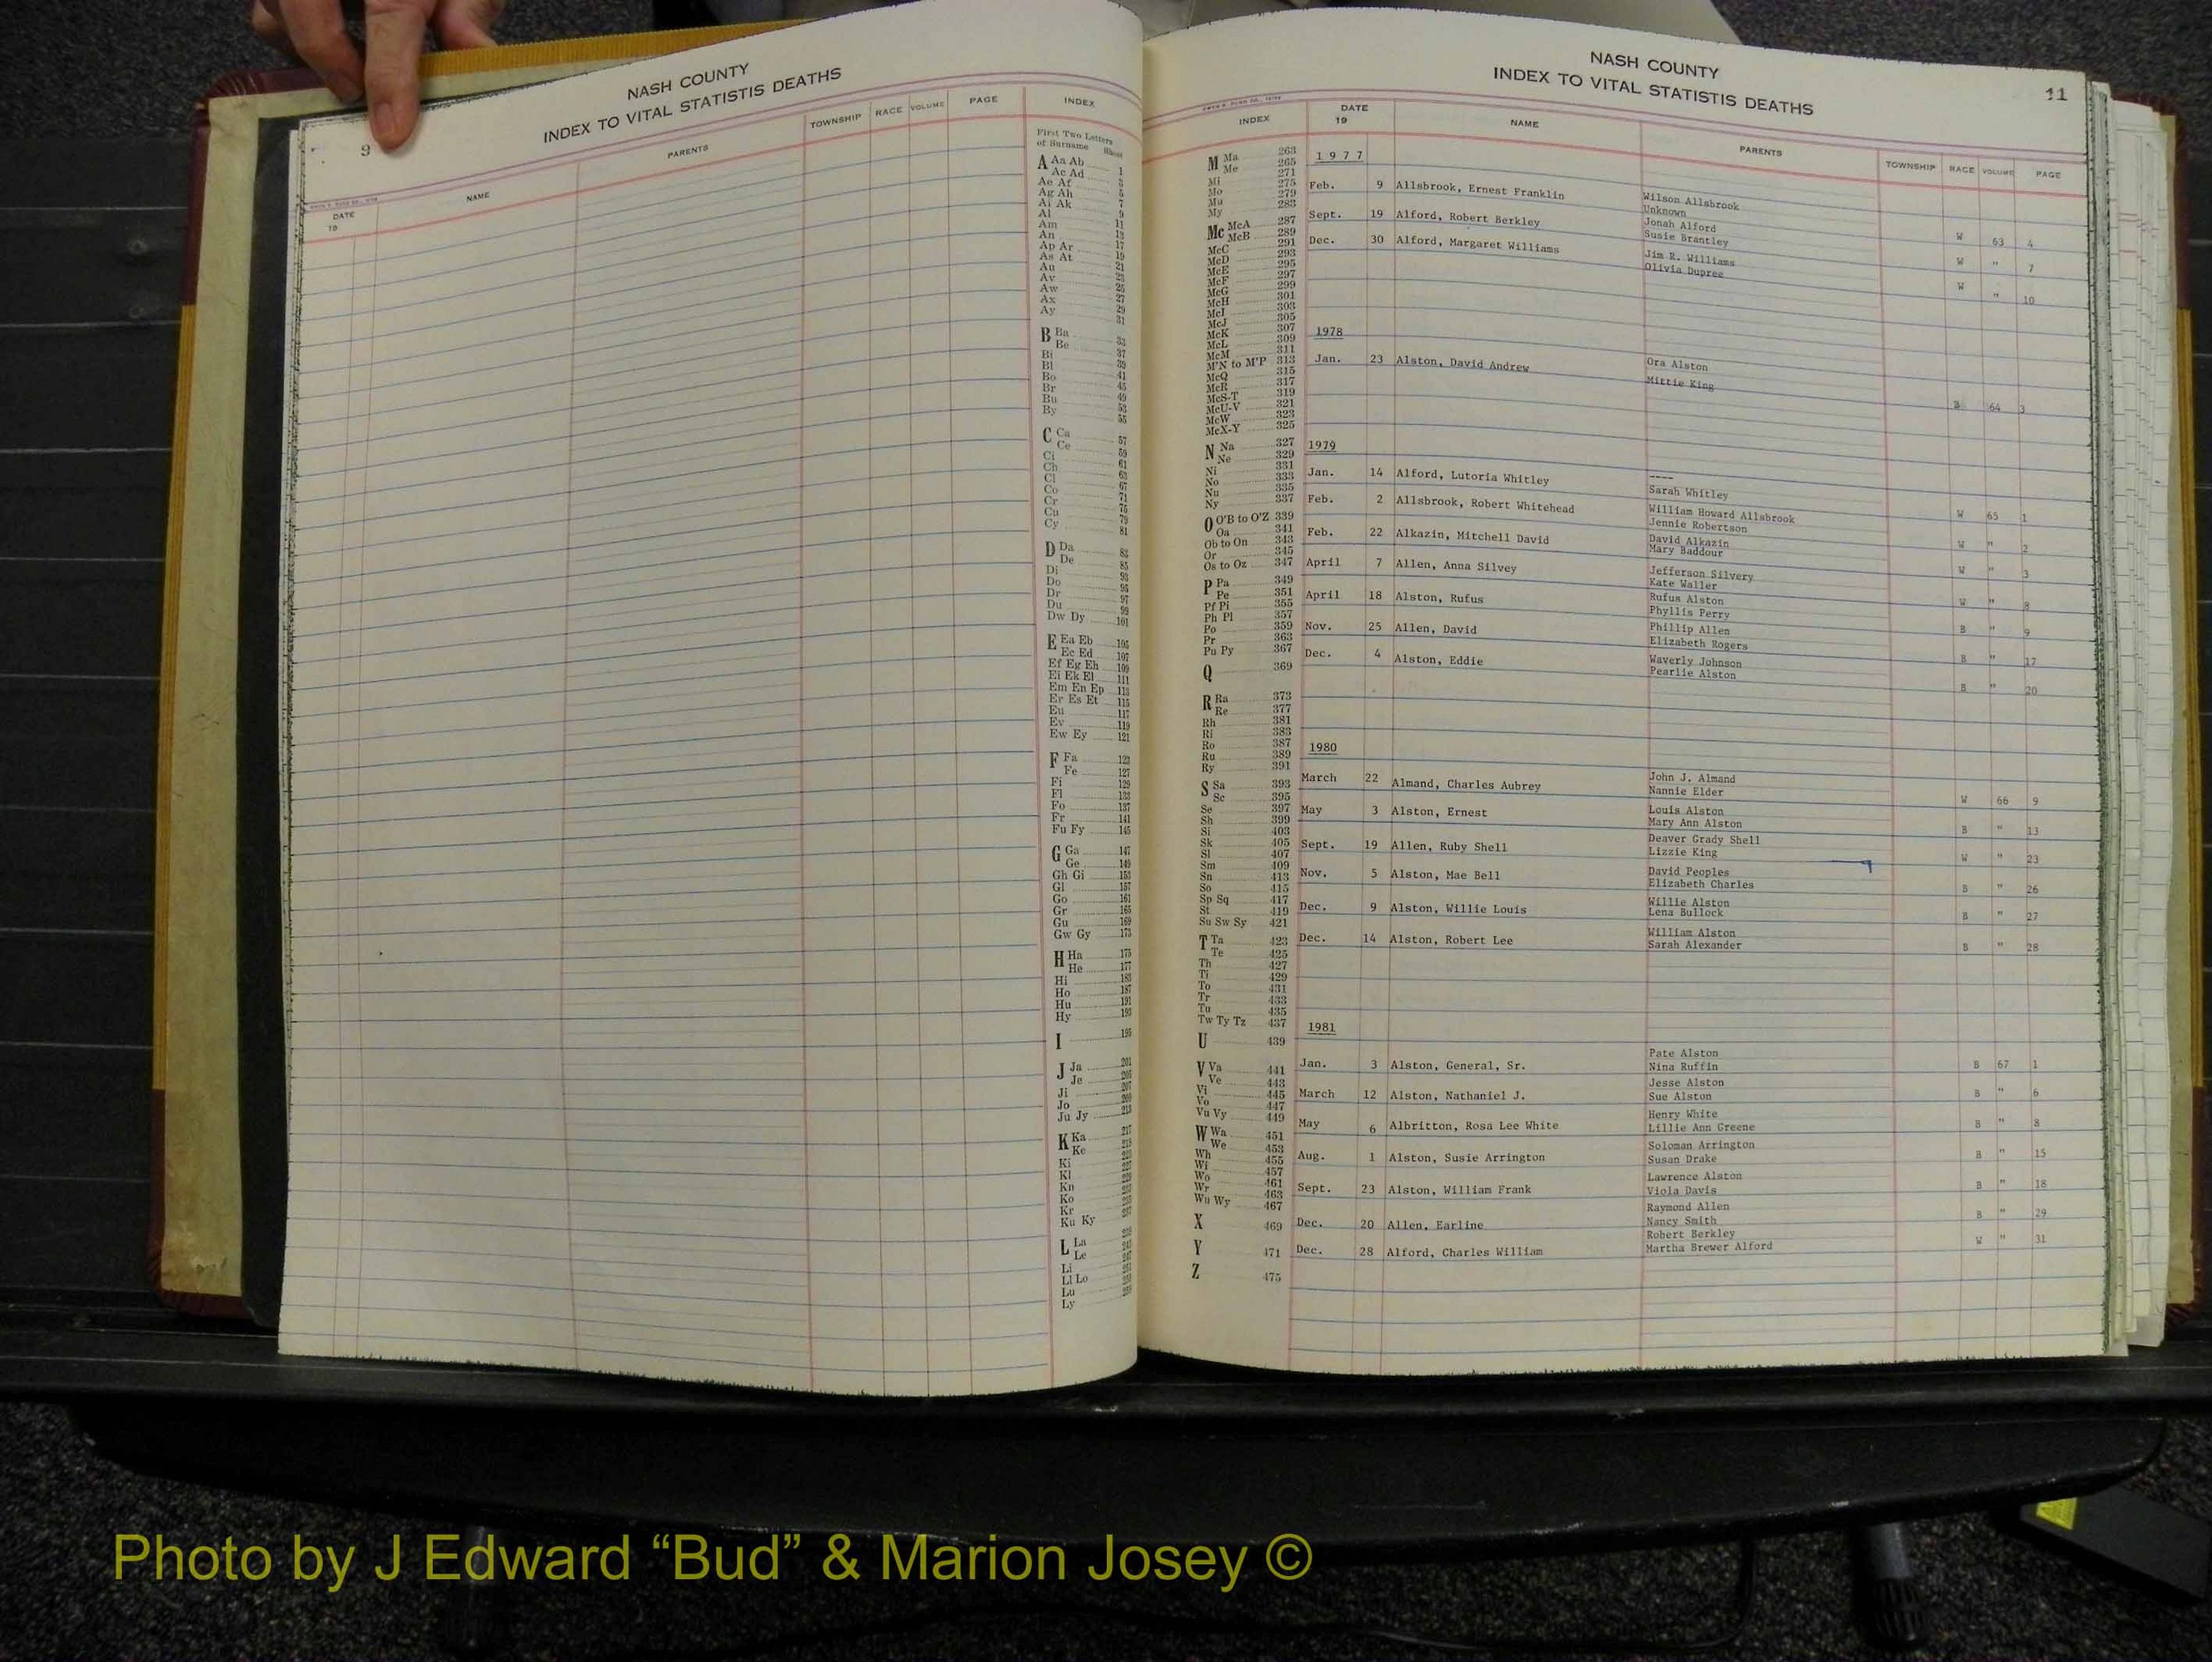 NASH COUNTY
INDEX TO VITAL STATISTIS DEATHS
9
DATE
19
NAME
PARENTS
TOWNSHIP RACE VOLUME PAGE
INDEX
First Two Letters
of Surname Sheet
A Aa Ab 1
Ac Ad
Ae Af
Ag Ah
Ai Ak
Al
Am
An
Ap Ar
As At
Au
Av
Aw
Ax
Ay
B Ba
Be
Bi
Bl
Bo
Br
Bu
By
C Ca
Ce
Ci
Ch
Cl
Co
Cr
Cu
Cy
D Da
De
Di
Do
Dr
Du
Dw Dy 101
E Ea Eb 105
Ec Ed 107
Ef Eg Eh 109
Ei Ek El 111
Em En Ep 113
Er Es Et 115
Eu 117
Ev 119
Ew Ey 121
F Fa 123
Fe 127
Fi 129
Fl 133
Fo 137
Fr 141
Fu Fy 145
G Ga 147
Ge 149
Gh Gi 153
Gl 157
Go 161
Gr 165
Gu 169
Gw Gy 173
H Ha 175
He 177
Hi 183
Ho 187
Hu 191
Hy 193
I 195
J Ja 201
Je 205
Ji 207
Jo 209
Ju Jy 213
K Ka 217
Ke
Ki
Kl
Kn
Ko
Kr
Ku Ky
L La
Le
Li
Ll Lo
Lu
Ly
NASH COUNTY
INDEX TO VITAL STATISTIS DEATHS
11
INDEX
DATE
19
NAME
PARENTS
TOWNSHIP RACE VOLUME PAGE
M Ma 263
Me 265
Mi 271
Mo 275
Mu 279
My 283
Mc McA 287
McB 289
McC 291
McD 293
McE 295
McF 297
McG 299
McH 301
McI 303
McJ 305
McK 307
McL 309
McM 311
M'N to M'P 313
McQ 315
McR 317
McS-T 319
McU-V 321
McW 323
McX-Y 325
N Na 327
Ne 329
Ni 331
No 333
Nu 335
Ny 337
O O'B to O'Z 339
Oa 341
Ob to On 343
Or 345
Os to Oz 347
P Pa 349
Pe 351
Pf Pi 355
Ph Pl 357
Po 359
Pr 363
Pu Py 367
Q 369
R Ra 373
Re 377
Rh 381
Ri 383
Ro 387
Ru 389
Ry 391
S Sa 393
Sc 395
Se 397
Sh 399
Si 403
Sk 405
Sl 407
Sm 409
Sn 413
So 415
Sp Sq 417
St 419
Su Sw Sy 421
T Ta 423
Te 425
Th 427
Ti 429
To 431
Tr 433
Tu 435
Tw Ty Tz 437
U 439
V Va 441
Ve 443
Vi 445
Vo 447
Vu Vy 449
W Wa 451
We 453
Wh 455
Wi 457
Wo 461
Wr 463
Wu Wy 467
X 469
Y 471
Z 475
1977
Feb. 9 Allsbrook, Ernest Franklin Wilson Allsbrook
Unknown W 63 4
Sept. 19 Alford, Robert Berkley Jonah Alford
Susie Brantley W " 7
Dec. 30 Alford, Margaret Williams Jim R. Williams
Olivia Dupree W " 10
1978
Jan. 23 Alston, David Andrew Ora Alston
Mittie King B 64 3
1979
Jan. 14 Alford, Lutoria Whitley ----
Sarah Whitley W 65 1
Feb. 2 Allsbrook, Robert Whitehead William Howard Allsbrook
Jennie Robertson W " 2
Feb. 22 Alkazin, Mitchell David David Alkazin
Mary Baddour W " 3
April 7 Allen, Anna Silvey Jefferson Silvery
Kate Waller W " 8
April 18 Alston, Rufus Rufus Alston
Phyllis Perry B " 9
Nov. 25 Allen, David Phillip Allen
Elizabeth Rogers B " 17
Dec. 4 Alston, Eddie Waverly Johnson
Pearlie Alston B " 20
1980
March 22 Almand, Charles Aubrey John J. Almand
Nannie Elder W 66 9
May 3 Alston, Ernest Louis Alston
Mary Ann Alston B " 13
Sept. 19 Allen, Ruby Shell Deaver Grady Shell
Lizzie King W " 23
Nov. 5 Alston, Mae Bell David Peoples
Elizabeth Charles B " 26
Dec. 9 Alston, Willie Louis Willie Alston
Lena Bullock B " 27
Dec. 14 Alston, Robert Lee William Alston
Sarah Alexander B " 28
1981
Jan. 3 Alston, General, Sr. Pate Alston
Nina Ruffin B 67 1
March 12 Alston, Nathaniel J. Jesse Alston
Sue Alston B " 6
May 6 Albritton, Rosa Lee White Henry White
Lillie Ann Greene B " 8
Aug. 1 Alston, Susie Arrington Soloman Arrington
Susan Drake B " 15
Sept. 23 Alston, William Frank Lawrence Alston
Viola Davis B " 18
Dec. 20 Allen, Earline Raymond Allen
Nancy Smith B " 29
Dec. 28 Alford, Charles William Robert Berkley
Martha Brewer Alford W " 31
Photo by J Edward “Bud” & Marion Josey ©